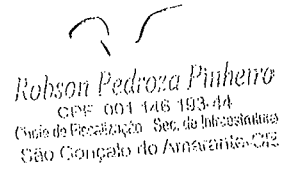 Robson Pedroza Pinheiro
CPF 001 146 193-44
Chefe de Fiscalização Sec. de Infraestrutura
São Gonçalo do Amarante-CE